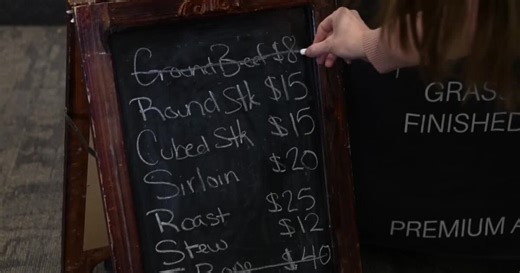 Ground Beef $8
Round Stk $15
Cubed Stk $15
Sirloin $20
Roast $25
Stew $12
Bone $40
GRASS
FINISHED
PREMIUM A